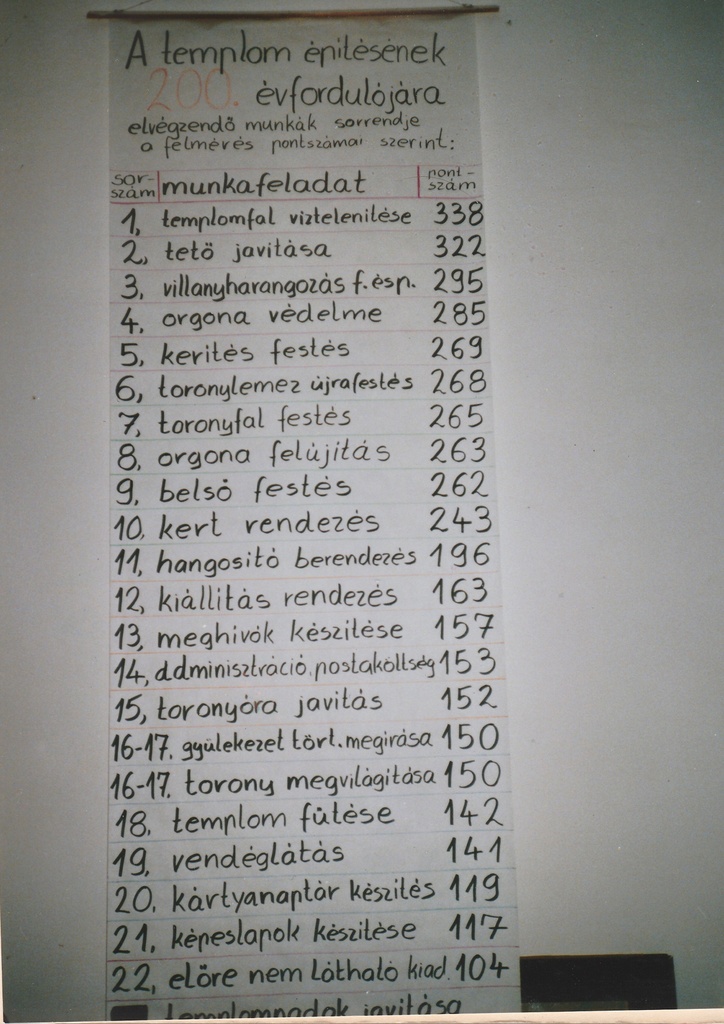 A templom építésének
200. évfordulójára
elvégzendő munkák sorrendje
a felmérés pontszámai szerint:
sor-szám munkafeladat pont-szám
1, templomfal víztelenítése 338
2, tető javítása 322
3, villanyharangozás f. ésp. 295
4, orgona védelme 285
5, kerítés festés 269
6, toronylemez újrafestés 268
7, toronyfal festés 265
8, orgona felújítás 263
9, belső festés 262
10, kert rendezés 243
11, hangosító berendezés 196
12, kiállítás rendezés 163
13, meghívók készítése 157
14, adminisztráció, postaköltség 153
15, toronyóra javítás 152
16-17. gyülekezet tört. megírása 150
16-17. torony megvilágítása 150
18. templom fűtése 142
19, vendéglátás 141
20. kártyanaptár készítés 119
21, képeslapok készítése 117
22, előre nem látható kiad. 104
templompadok javítása